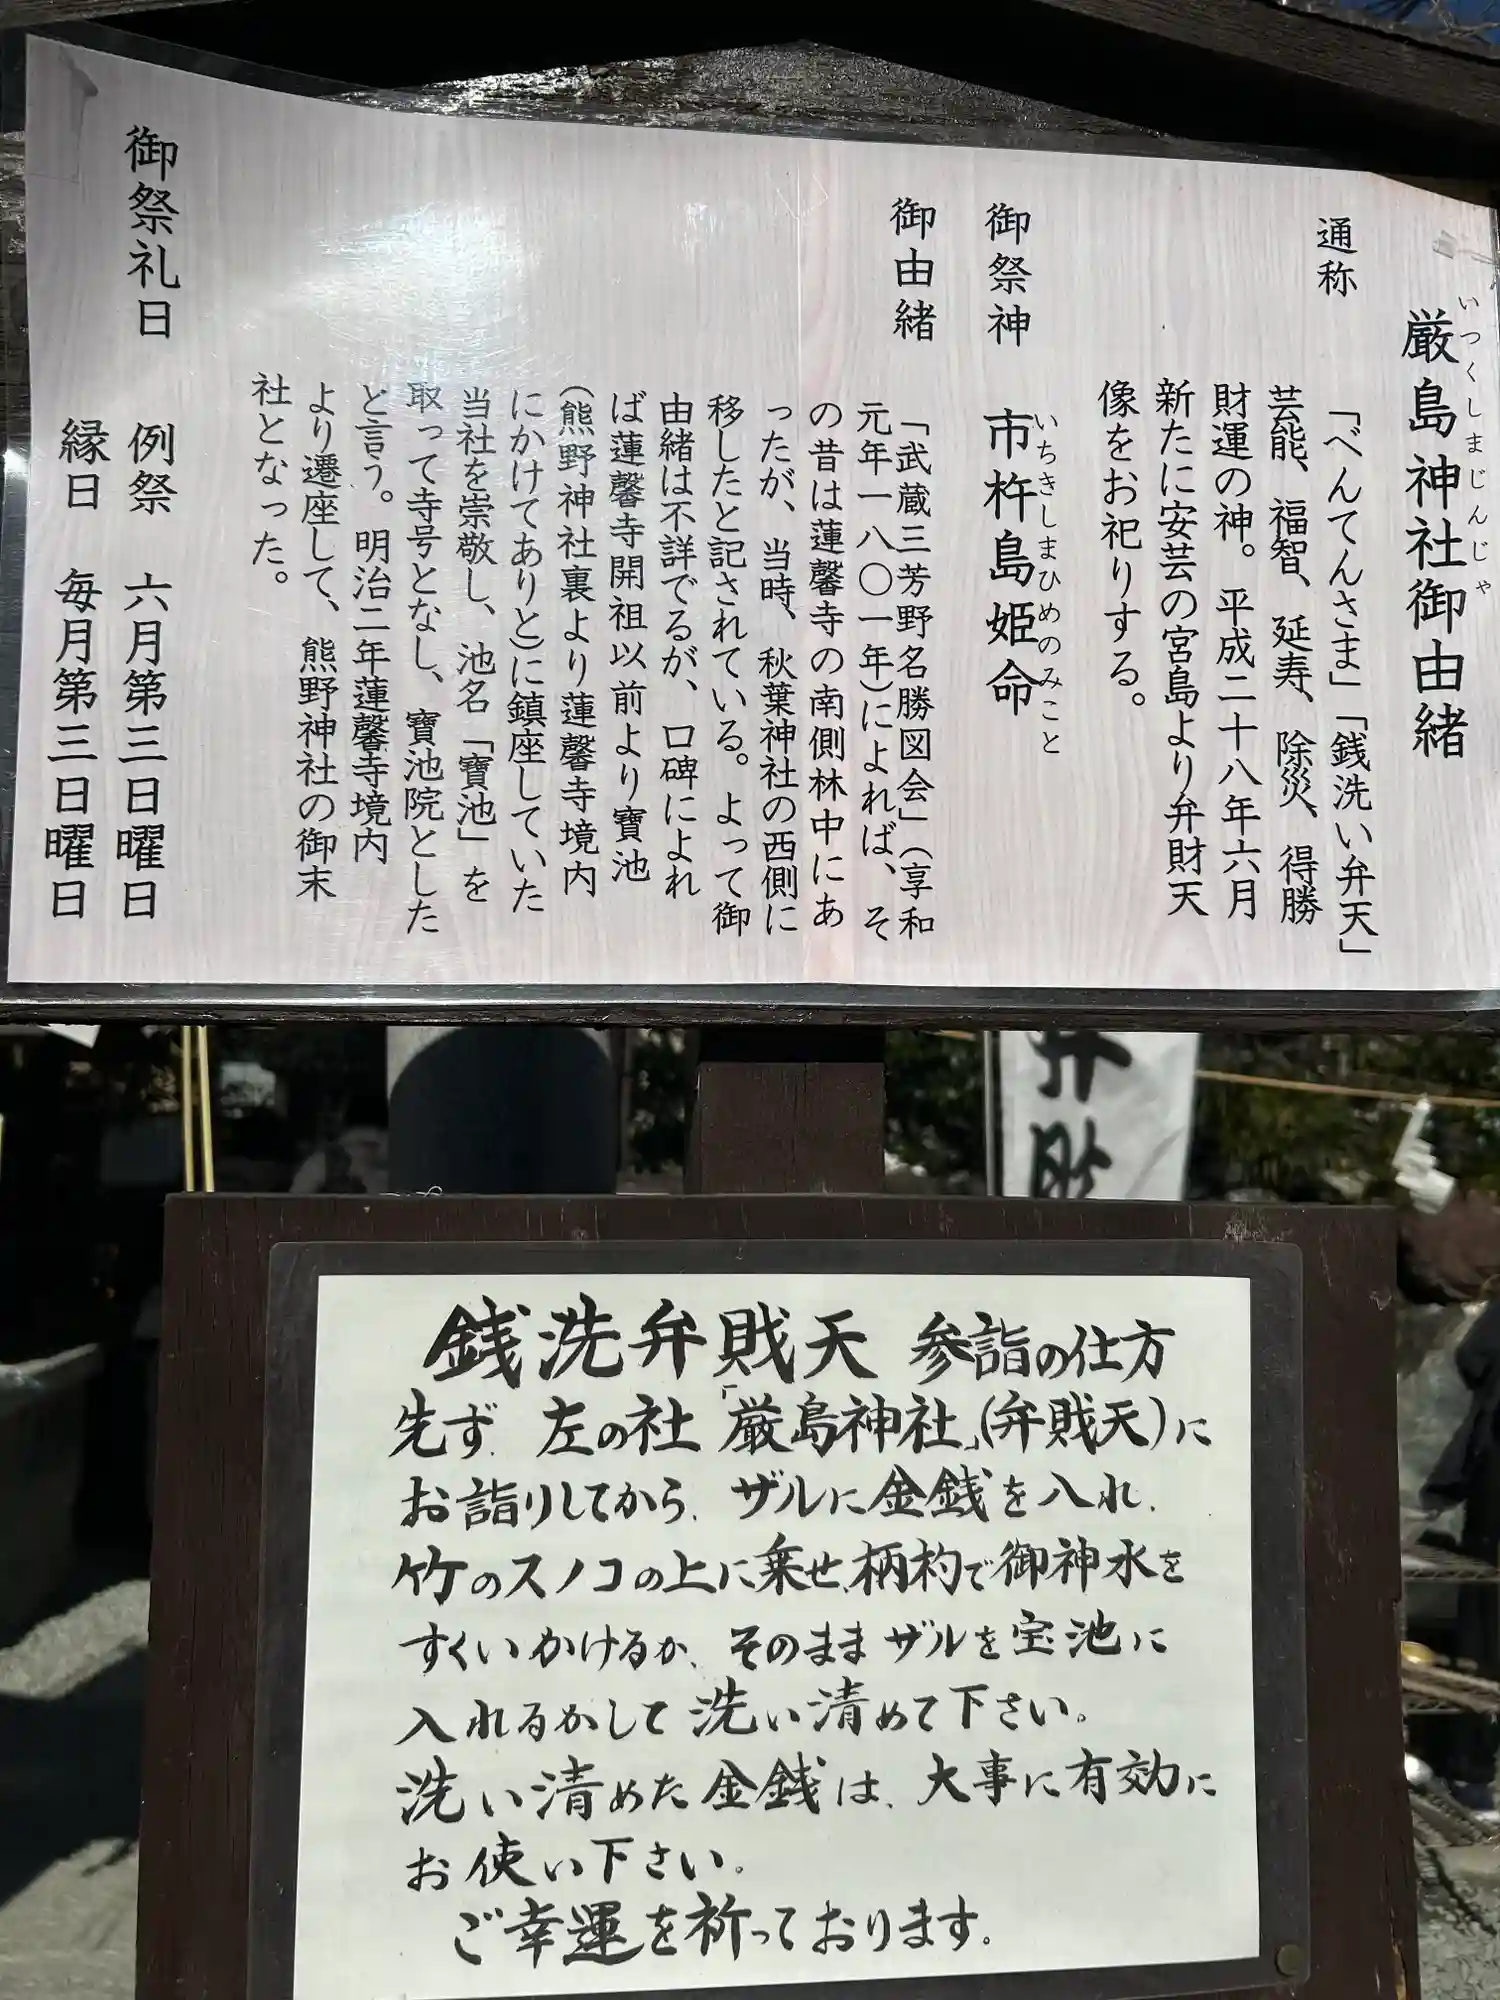 厳島神社御由緒
いつくしまじんじゃ
通称
「べんてんさま」「銭洗い弁天」
芸能、福智、延寿、除災、得勝
財運の神。平成二十八年六月
新たに安芸の宮島より弁財天
像をお祀りする。
御祭神 市杵島姫命
いちきしまひめのみこと
御由緒
「武蔵三芳野名勝図会」(享和
元年一八〇一年)によれば、そ
の昔は蓮馨寺の南側林中にあ
ったが、当時、秋葉神社の西側に
移したと記されている。よって御
由緒は不詳でるが、口碑によれ
ば蓮馨寺開祖以前より寶池
(熊野神社裏より蓮馨寺境内
にかけてありと)に鎮座していた
当社を崇敬し、池名「寶池」を
取って寺号となし、寶池院とした
と言う。明治二年蓮馨寺境内
より遷座して、熊野神社の御末
社となった。
御祭礼日 例祭 六月第三日曜日
縁日 毎月第三日曜日
弁財
銭洗弁財天 参詣の仕方
先ず、左の社「厳島神社」(弁財天)に
お詣りしてから、ザルに金銭を入れ、
竹のスノコの上に乗せ、柄杓で御神水を
すくいかけるか、そのままザルを宝池に
入れるかして洗い清めて下さい。
洗い清めた金銭は、大事に有効に
お使い下さい。
ご幸運を祈っております。